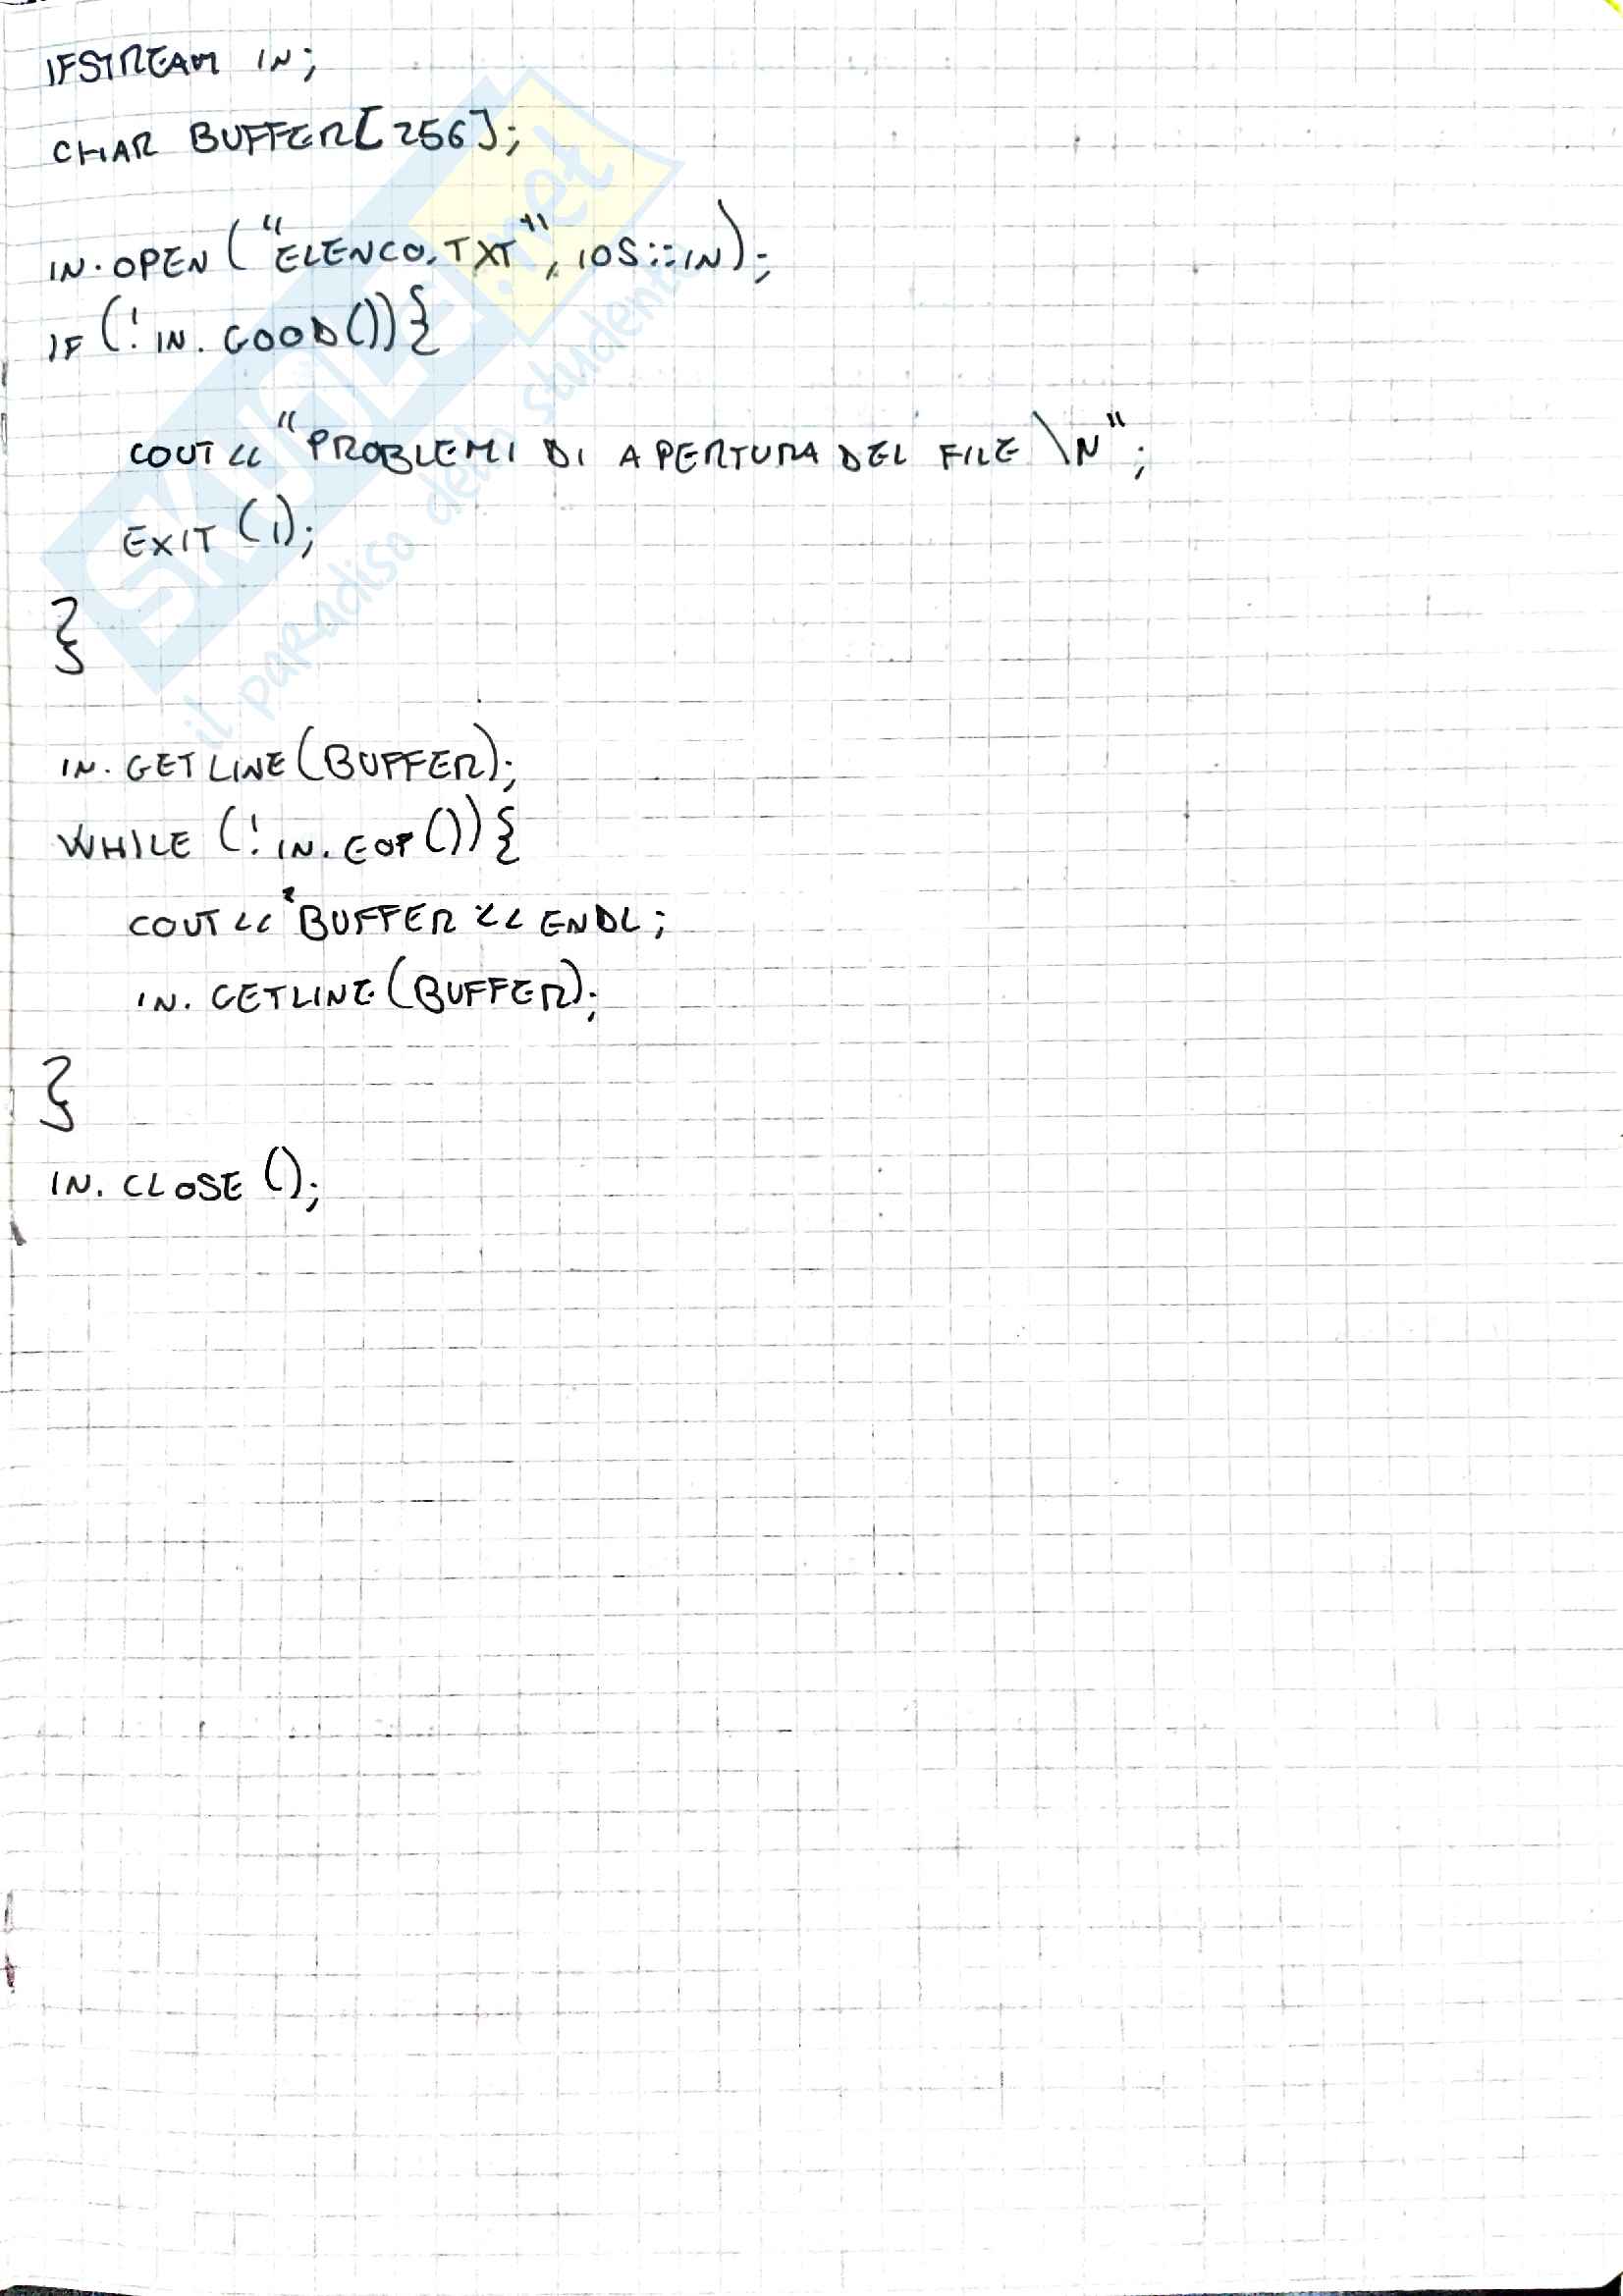 IFSTREAM IN;
CHAR BUFFER[256];
IN.OPEN("ELENCO.TXT", IOS::IN);
IF (!IN.GOOD()){
COUT << "PROBLEMI DI APERTURA DEL FILE \N";
EXIT (1);
}
IN.GETLINE(BUFFER);
WHILE (!IN.EOF()){
COUT << BUFFER << ENDL;
IN.GETLINE(BUFFER);
}
IN.CLOSE();
SKUOLA.net
il paradiso dello studente